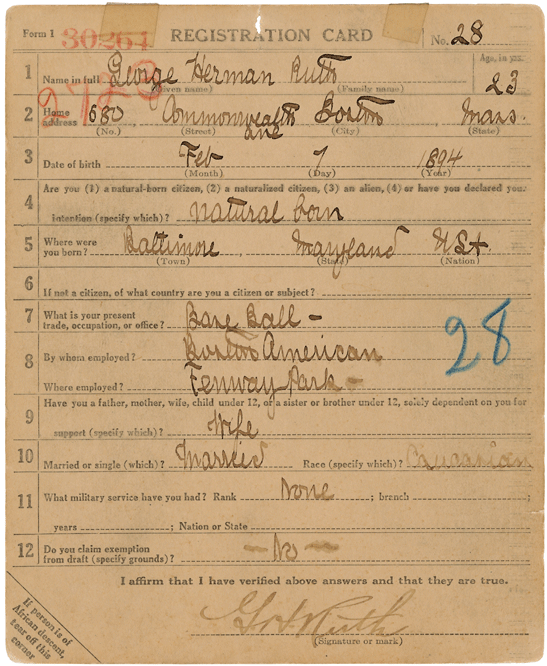 Form 1 30264 REGISTRATION CARD No. 28
1 Name in full George Herman Ruth Age, in yrs. 23
(Given name) (Family name)
2723
2 Home address 680 Commonwealth ave Boston Mass.
(No.) (Street) (City) (State)
3 Date of birth Feb 7 1894
(Month) (Day) (Year)
4 Are you (1) a natural-born citizen, (2) a naturalized citizen, (3) an alien, (4) or have you declared your
intention (specify which)? natural born
5 Where were you born? Baltimore, Maryland USA.
(Town) (State) (Nation)
6 If not a citizen, of what country are you a citizen or subject?
7 What is your present trade, occupation, or office? Base Ball -
8 By whom employed? Boston American
Where employed? Fenway Park -
28
9 Have you a father, mother, wife, child under 12, or a sister or brother under 12, solely dependent on you for
support (specify which)? Wife
10 Married or single (which)? Married Race (specify which)? Caucasian
11 What military service have you had? Rank None ; branch ;
years ; Nation or State
12 Do you claim exemption from draft (specify grounds)? - No -
I affirm that I have verified above answers and that they are true.
G H Ruth
(Signature or mark)
If person is of
African descent,
tear off this
corner